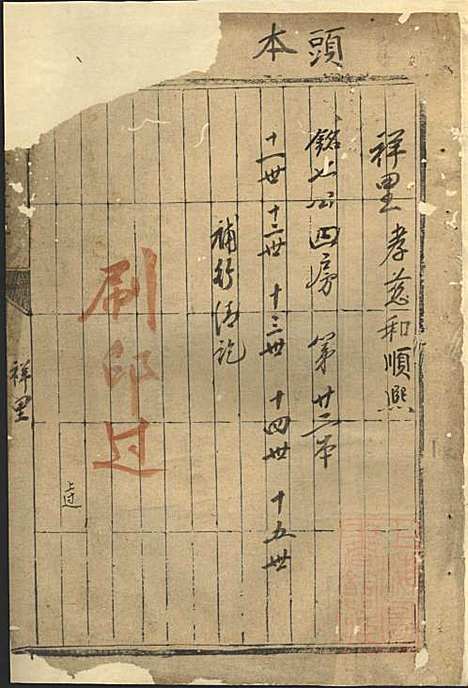 頭本
祥里 孝慈和順興
銘七公四房 第廿二本
十一世 十二世 十三世 十四世 十五世
補彩清訖
刷印过
过
祥里